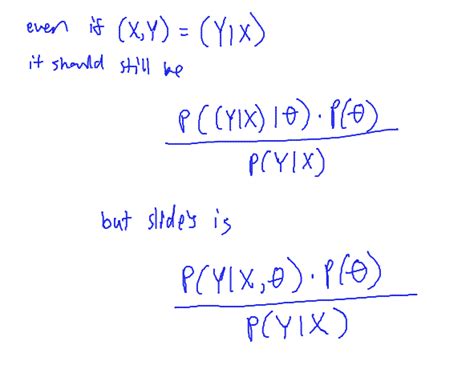 even if (X,Y) = (Y|X)
it should still be
P((Y|X)|θ)·P(θ)
P(Y|X)
but slide's is
P(Y|X,θ)·P(θ)
P(Y|X)